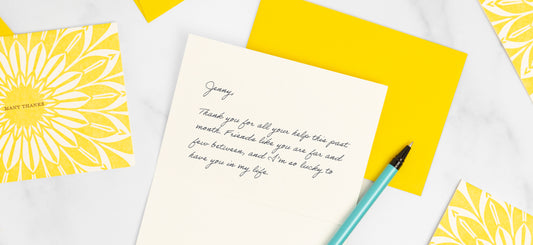 MANY THANKS
Jenny,
Thank you for all your help this past
month. Friends like you are far and
few between, and I'm so lucky to
have you in my life.